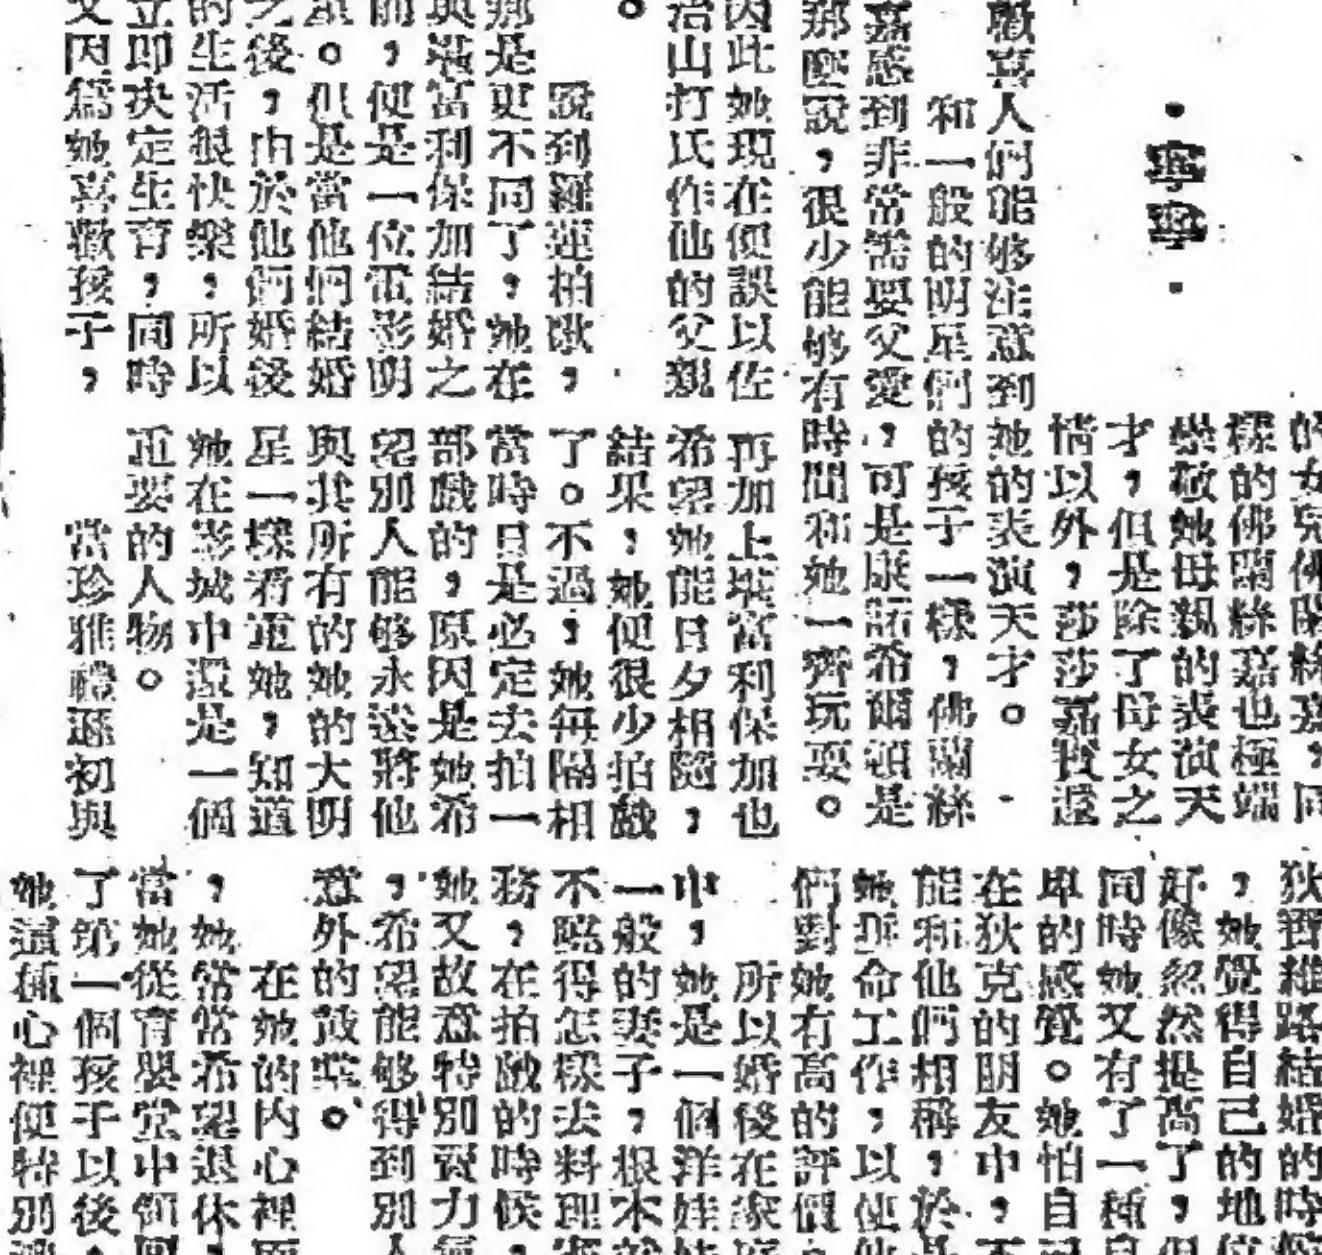 ·寧寧·
歡喜人們能够注意到她的表演天才。
和一般的明星們的孩子一樣，佛蘭絲
嘉感到非常需要父愛，可是康諾希爾頓是
那麼說，很少能够有時間和她一齊玩耍。
因此她現在便誤以佐
治山打氏作他的父親
。
說到羅蓮拍歌，
那是更不同了，她在
與堪富利保加結婚之
前，便是一位電影明
星。但是當他們結婚
之後，由於他們婚後
的生活很快樂，所以
立即決定生育，同時
又因爲她喜歡孩子，
的女兒佛蘭絲嘉，同
樣的佛蘭絲嘉也極端
崇敬她母親的表演天
才，但是除了母女之
情以外，莎莎嘉寶還
再加上堪富利保加也
希望她能日夕相隨，
結果，她便很少拍戲
了。不過，她每隔相
當時日是必定去拍一
部戲的，原因是她希
望別人能够永遠將他
與其所有的她的大明
星一樣看重她，知道
她在影城中還是一個
重要的人物。
當珍雅禮遜初與
狄 路結婚的時
，她覺得自己的地
好像忽然提高了，但
同時她又有了一種自
卑的感覺。她怕自
在狄克的朋友中，不
能和他們相稱，於是
她拼命工作，以使他
們對她有高的評價。
所以婚後在家
中，她是一個洋娃娃
一般的妻子，根本就
不曉得怎樣去料理家
務，在拍戲的時候，
她又故意特別賣力
，希望能够得到別人
意外的鼓掌。
在她的內心裡
，她常常希望退休，
當她從育嬰堂中領
了第一個孩子以後，
她這種心裡便特別